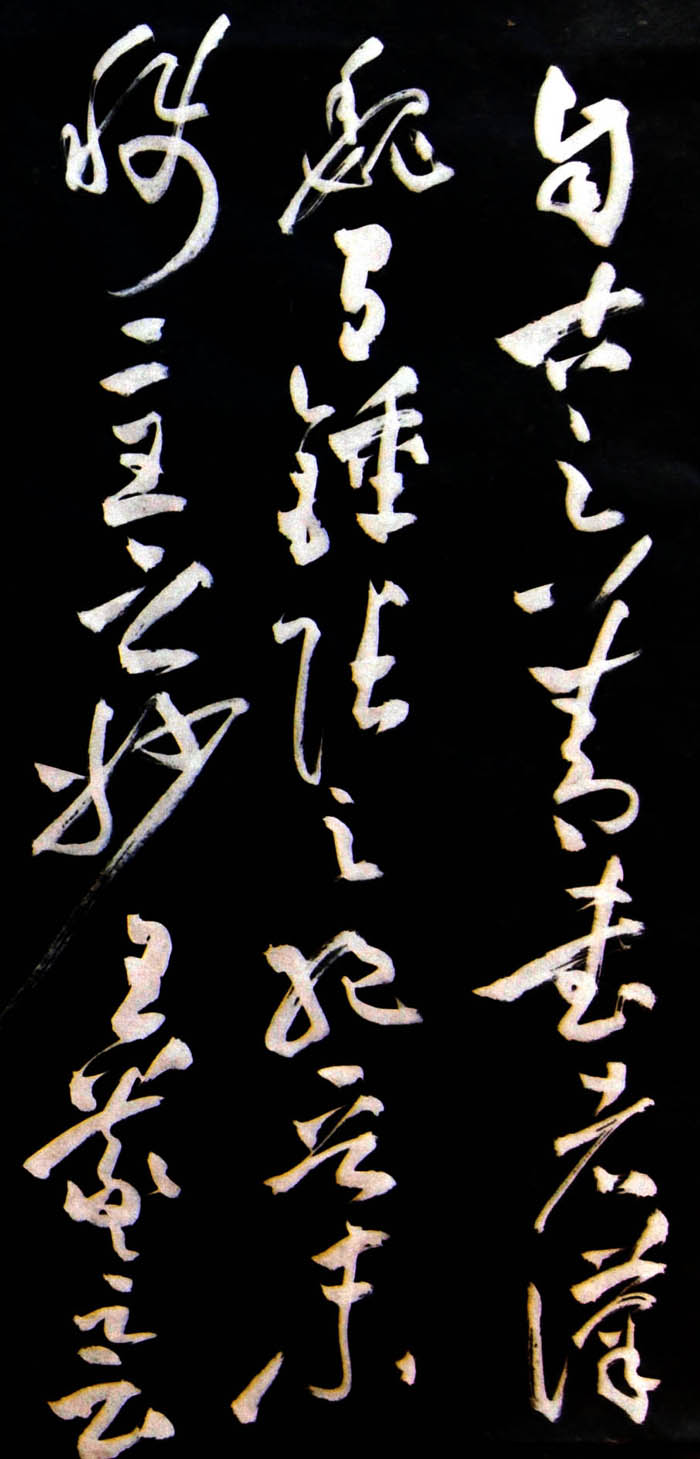 自古之善書者漢
魏有鍾張之絕晉末
稱二王之妙王羲之云